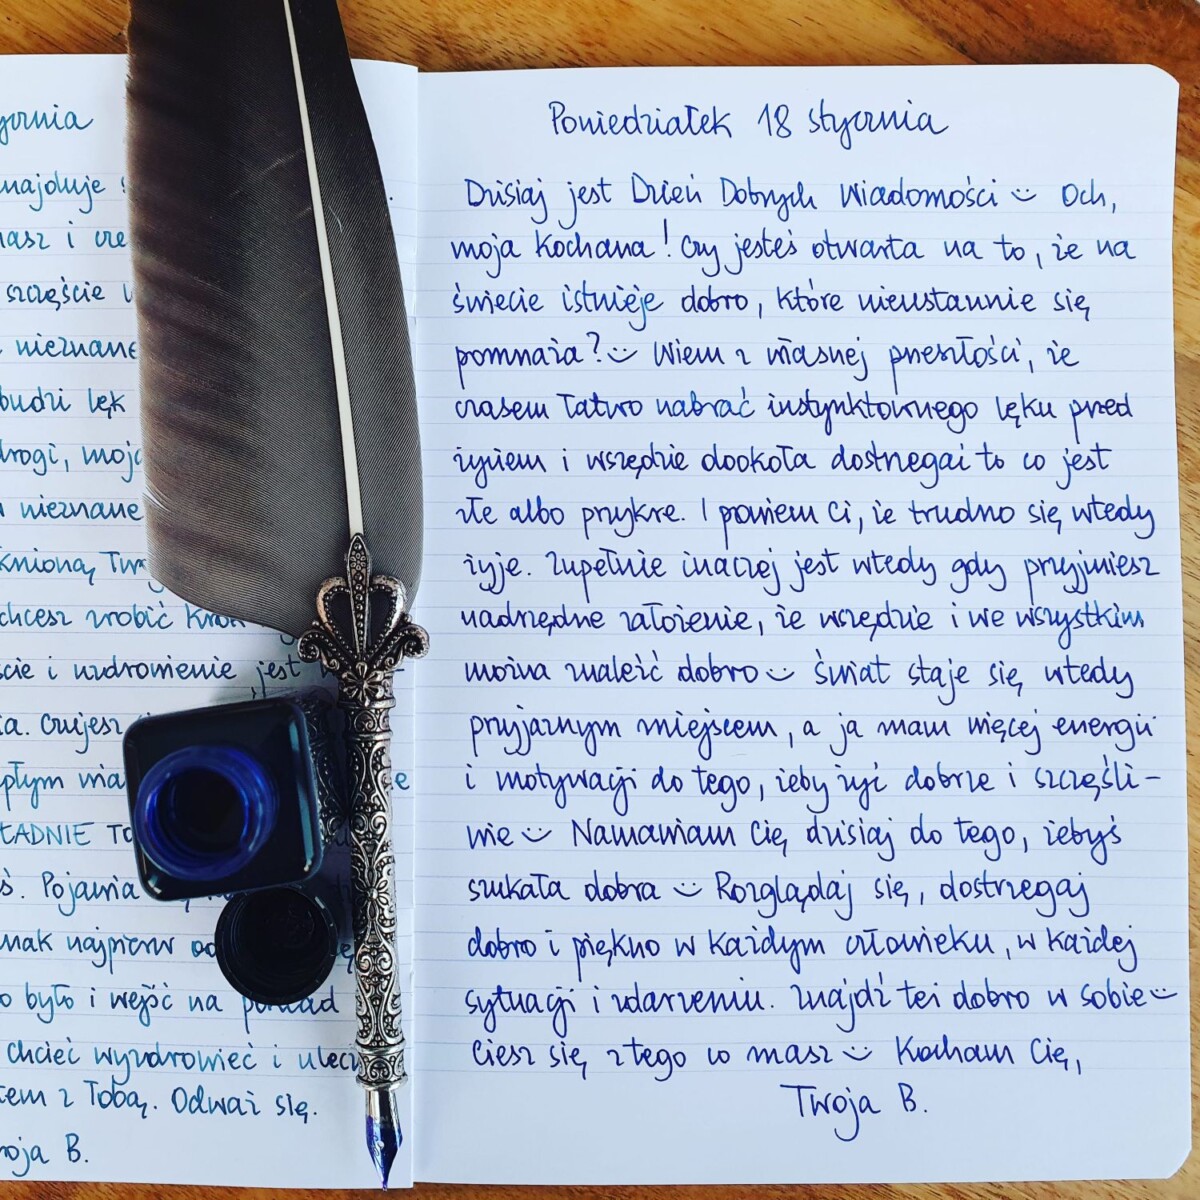 ycznia
najduje
nasz i
szczęście
nieznane
budzi lęk
drogi, moja
nieznane
chcesz zrobić krok
cie i uzdrowienie jest
ia. Czujesz
płym
ŁADNIE TO
ś. Pojawia
nak najpierw
o było i wejść na pokład
chcieć wyzdrowieć i
tem z Tobą. Odważ się.
woja B.
Poniedziałek 18 stycznia
Dzisiaj jest Dzień Dobrych Wiadomości :) Och,
moja Kochana! Czy jesteś otwarta na to, że na
świecie istnieje dobro, które nieustannie się
pomnaża? :) Wiem z własnej przeszłości, że
czasem łatwo nabrać instynktownego lęku przed
życiem i wszędzie dookoła dostrzegać to co jest
złe albo przykre. I powiem Ci, że trudno się wtedy
żyje. Zupełnie inaczej jest wtedy gdy przyjmiesz
nadrzędne założenie, że wszędzie i we wszystkim
można znaleźć dobro :) Świat staje się wtedy
przyjaznym miejscem, a ja mam więcej energii
i motywacji do tego, żeby żyć dobrze i szczęśli-
wie :) Namawiam Cię dzisiaj do tego, żebyś
szukała dobra :) Rozglądaj się, dostrzegaj
dobro i piękno w każdym człowieku, w każdej
sytuacji i zdarzeniu. Znajdź też dobro w sobie :)
Ciesz się z tego co masz :) Kocham Cię,
Twoja B.